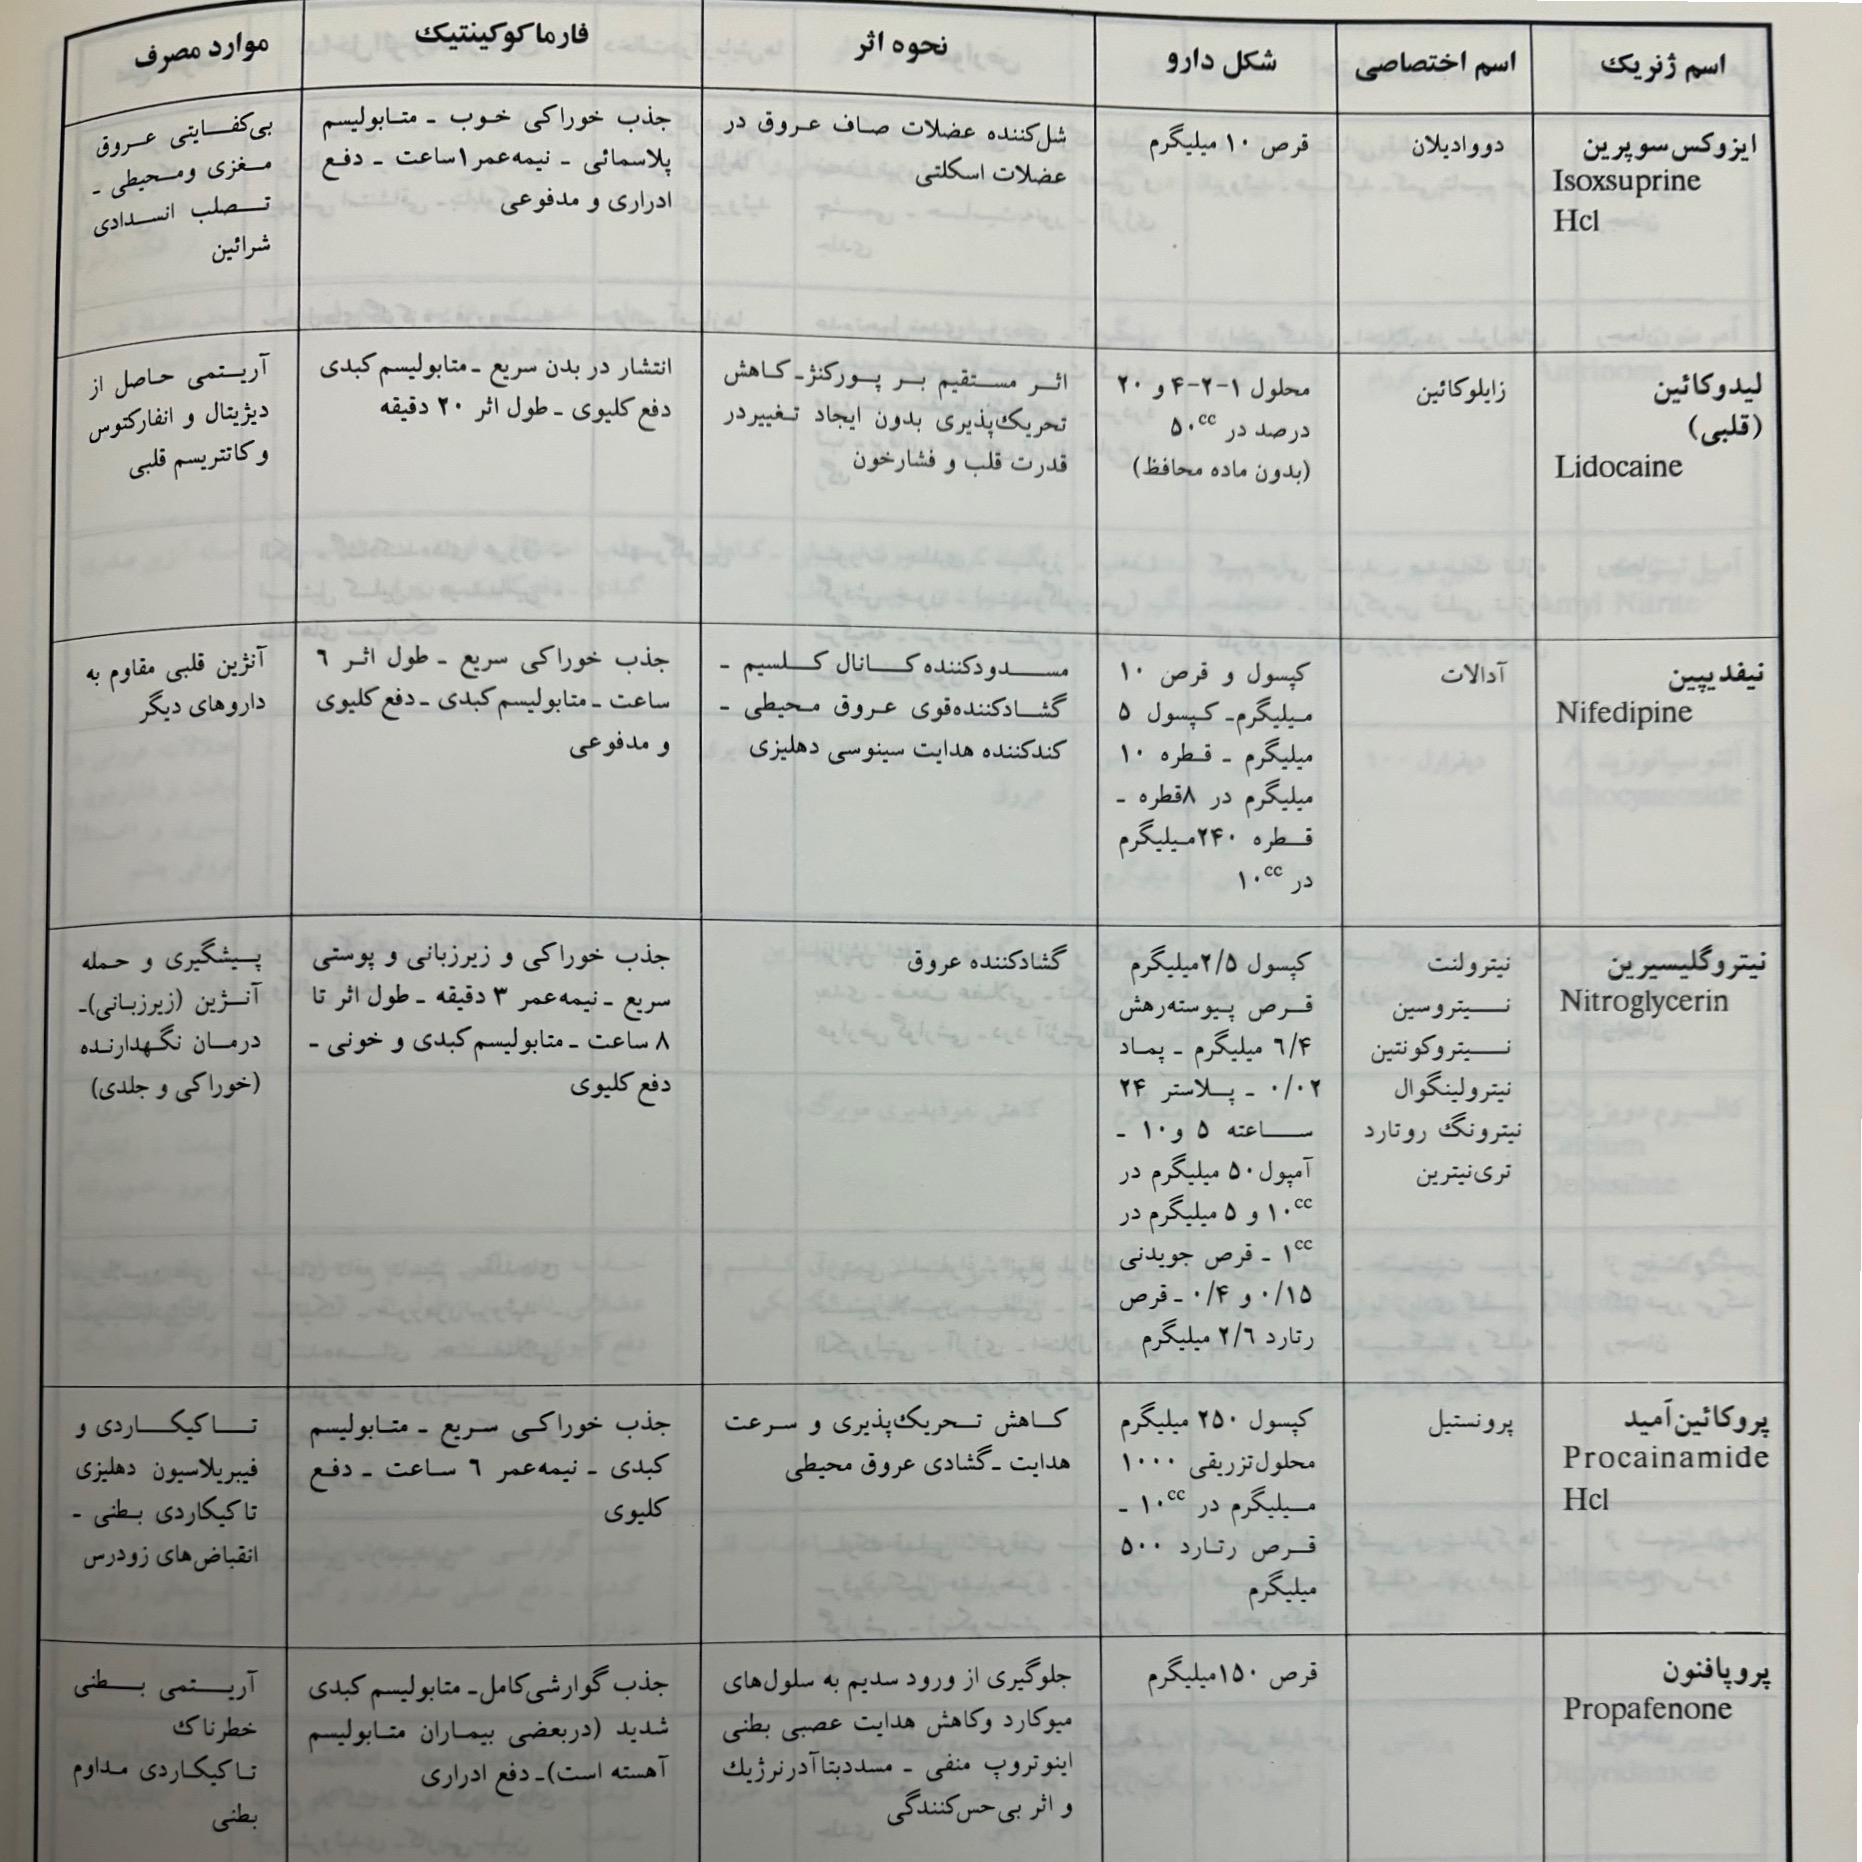 اسم ژنریک
اسم اختصاصی
شکل دارو
نحوه اثر
فارماکوکینتیک
موارد مصرف
ایزوکس‌سوپرین
Isoxsuprine
Hcl
دووادیلان
قرص ۱۰ میلیگرم
شل‌کننده عضلات صاف عروق در
عضلات اسکلتی
جذب خوراکی خوب ـ متابولیسم
پلاسمائی ـ نیمه‌عمر ۱ساعت ـ دفع
ادراری و مدفوعی
بی‌کفایتی عروق
مغزی ومحیطی ـ
تصلب انسدادی
شرائین
لیدوکائین
(قلبی)
Lidocaine
زایلوکائین
محلول ۱-۲-۴ و ۲۰
درصد در ۵۰cc
(بدون ماده محافظ)
اثر مستقیم بر پورکنژـ کاهش
تحریک‌پذیری بدون ایجاد تغییردر
قدرت قلب و فشارخون
انتشار در بدن سریع ـ متابولیسم کبدی
دفع کلیوی ـ طول اثر ۲۰ دقیقه
آریتمی حاصل از
دیژیتال و انفارکتوس
و کاتتریسم قلبی
نیفدیپین
Nifedipine
آدالات
کپسول و قرص ۱۰
میلیگرم- کپسول ۵
میلیگرم ـ قطره ۱۰
میلیگرم در ۸قطره ـ
قطره ۲۴۰میلیگرم
در ۱۰cc
مسدودکننده کانال کلسیم ـ
گشادکننده‌قوی عروق محیطی ـ
کندکننده هدایت سینوسی دهلیزی
جذب خوراکی سریع ـ طول اثر ۶
ساعت ـ متابولیسم کبدی ـ دفع کلیوی
و مدفوعی
آنژین قلبی مقاوم به
داروهای دیگر
نیتروگلیسیرین
Nitroglycerin
نیترولنت
نیتروسین
نیتروکونتین
نیترولینگوال
نیترونگ روتارد
تری‌نیترین
کپسول ۲/۵میلیگرم
قرص پیوسته‌رهش
۶/۴ میلیگرم ـ پماد
۰/۰۲ ـ پلاستر ۲۴
ساعته ۵ و۱۰ ـ
آمپول۵۰ میلیگرم در
۱۰cc و ۵ میلیگرم در
۱cc ـ قرص جویدنی
۰/۱۵ و ۰/۴ ـ قرص
رتارد ۲/۶ میلیگرم
گشادکننده عروق
جذب خوراکی و زیرزبانی و پوستی
سریع ـ نیمه‌عمر ۳ دقیقه ـ طول اثر تا
۸ ساعت ـ متابولیسم کبدی و خونی ـ
دفع کلیوی
پیشگیری و حمله
آنژین (زیرزبانی)ـ
درمان نگهدارنده
(خوراکی و جلدی)
پروکائین‌آمید
Procainamide
Hcl
پرونستیل
کپسول ۲۵۰ میلیگرم
محلول‌تزریقی ۱۰۰۰
میلیگرم در ۱۰cc ـ
قرص رتارد ۵۰۰
میلیگرم
کاهش تحریک‌پذیری و سرعت
هدایت ـ گشادی عروق محیطی
جذب خوراکی سریع ـ متابولیسم
کبدی ـ نیمه‌عمر ۶ ساعت ـ دفع
کلیوی
تاکیکاردی و
فیبریلاسیون دهلیزی
تاکیکاردی بطنی ـ
انقباض‌های زودرس
پروپافنون
Propafenone
قرص ۱۵۰میلیگرم
جلوگیری از ورود سدیم به سلول‌های
میوکارد وکاهش هدایت عصبی بطنی
اینوتروپ منفی ـ مسددبتاآدرنرژیک
و اثر بی‌حس‌کنندگی
جذب گوارشی‌کامل‌ـ متابولیسم کبدی
شدید (دربعضی بیماران متابولیسم
آهسته است)ـ دفع ادراری
آریتمی بطنی
خطرناک
تاکیکاردی مداوم
بطنی